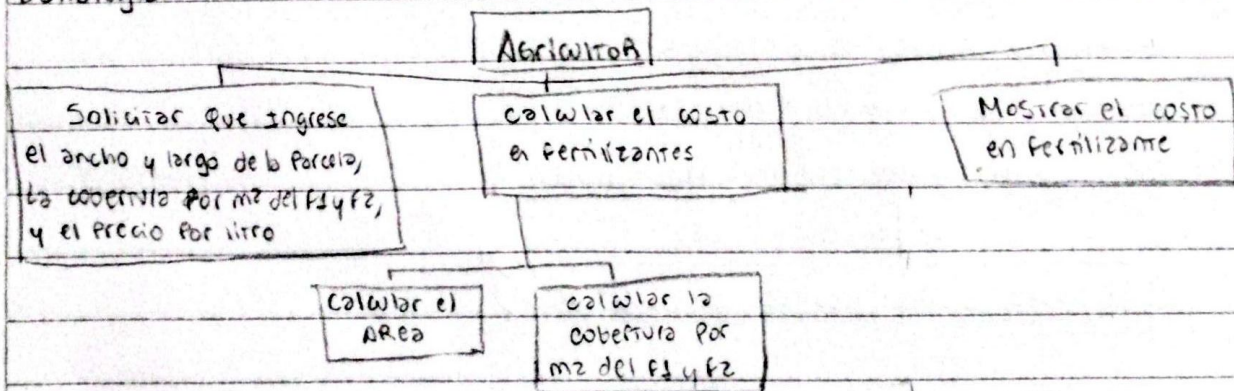 AGRICULTOR
Solicitar que Ingrese
el ancho y largo de la Parcela,
la cobertura por m2 del F1 y F2,
y el Precio por litro
calcular el costo
en Fertilizantes
Mostrar el costo
en fertilizante
calcular el
AREA
calcular la
cobertura por
m2 del F1 y F2